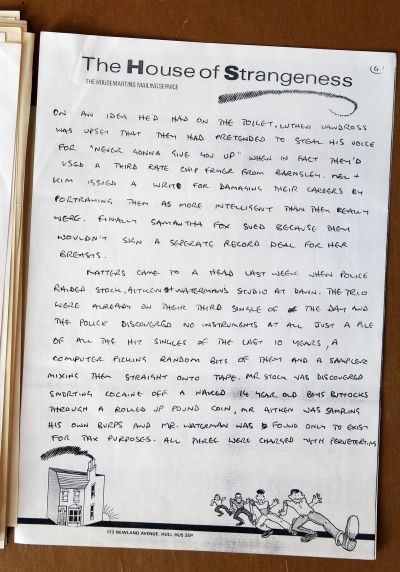 The House of Strangeness
THE HOUSEMARTINS MAILING SERVICE
4
ON AN IDEA HE'D HAD ON THE TOILET. LUTHER VANDROSS
WAS UPSET THAT THEY HAD PRETENDED TO STEAL HIS VOICE
FOR "NEVER GONNA GIVE YOU UP" WHEN IN FACT THEY'D
USED A THIRD RATE CHIP FRYER FROM BARNSLEY. MEL +
KIM ISSUED A WRIT FOR DAMAGING THEIR CAREERS BY
PORTRAYING THEM AS MORE INTELLIGENT THAN THEY REALLY
WERE. FINALLY SAMANTHA FOX SUED BECAUSE THEY
WOULDN'T SIGN A SEPERATE RECORD DEAL FOR HER
BREASTS.
MATTERS CAME TO A HEAD LAST WEEK WHEN POLICE
RAIDED STOCK, AITKEN + WATERMANS STUDIO AT DAWN. THE TRIO
WERE ALREADY ON THEIR THIRD SINGLE OF THE DAY AND
THE POLICE DISCOVERED NO INSTRUMENTS AT ALL JUST A PILE
OF ALL THE HIT SINGLES OF THE LAST 10 YEARS, A
COMPUTER PICKING RANDOM BITS OF THEM AND A SAMPLER
MIXING THEM STRAIGHT ONTO TAPE. MR STOCK WAS DISCOVERED
SNORTING COCAINE OFF A NAKED 14 YEAR OLD BOYS BUTTOCKS
THROUGH A ROLLED UP POUND COIN, MR AITKEN WAS SAMPLING
HIS OWN BURPS AND MR. WATERMAN WAS FOUND ONLY TO EXIST
FOR TAX PURPOSES. ALL THREE WERE CHARGED WITH
173 NEWLAND AVENUE, HULL, HU5 2EP.